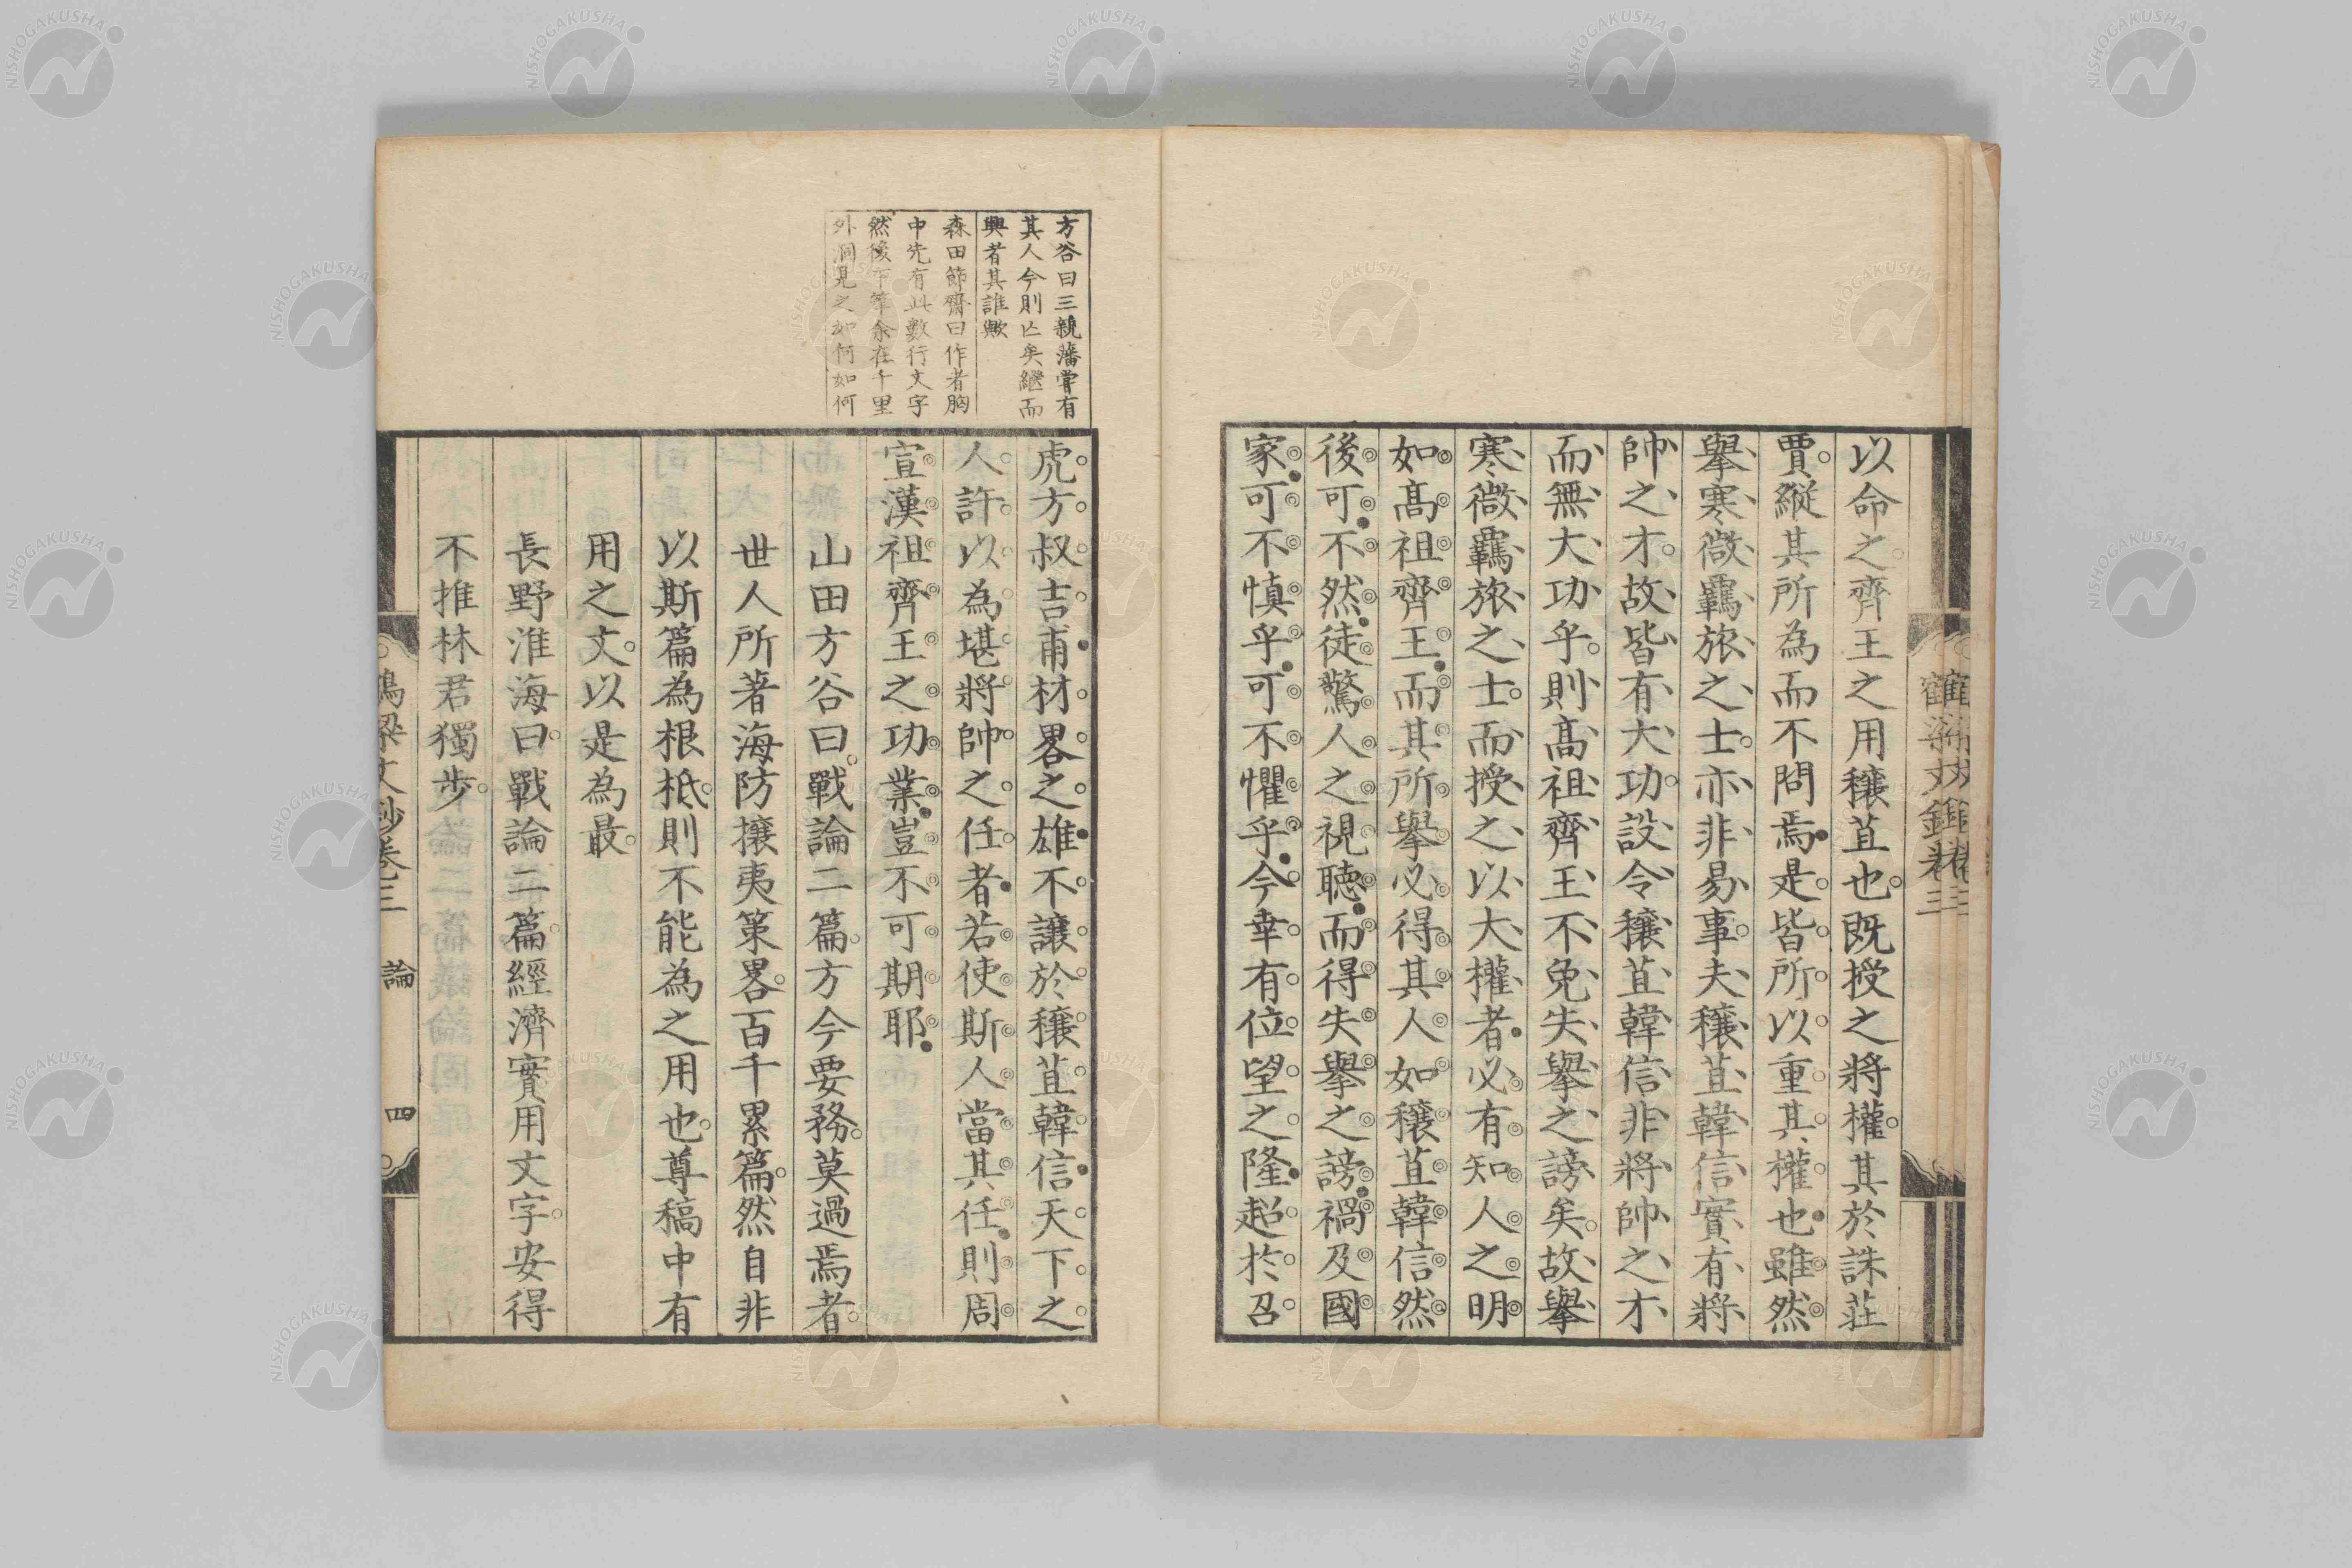 以命之齊王之用穰苴也既授之將權其於誅莊
賈縱其所為而不問焉是皆所以重其權也雖然
擧寒微羈旅之士亦非易事夫穰苴韓信實有將
帥之才故皆有大功設令穰苴韓信非將帥之才
而無大功乎則髙祖齊王不免失擧之謗矣故擧
寒微羈旅之士而授之以大權者必有知人之明
如髙祖齊王而其所擧必得其人如穰苴韓信然
後可不然徒驚人之視聽而得失擧之謗禍及國
家可不慎乎可不懼乎今幸有位望之隆超於召
方谷曰三親藩嘗有
其人今則亡矣繼而
興者其誰歟
森田節齋曰作者胸
中先有此數行文字
然後下筆余在千里
外洞見之如何如何
虎方叔吉甫材畧之雄不讓於穰苴韓信天下之
人許以為堪將帥之任者若使斯人當其任則周
宣漢祖齊王之功業豈不可期耶
山田方谷曰戰論二篇方今要務莫過焉者
世人所著海防攘夷策畧百千累篇然自非
以斯篇為根柢則不能為之用也尊稿中有
用之文以是為最
長野淮海曰戰論二篇經濟實用文字安得
不推林君獨歩
鶴梁文鈔卷三　論　四
NISHOGAKUSHA